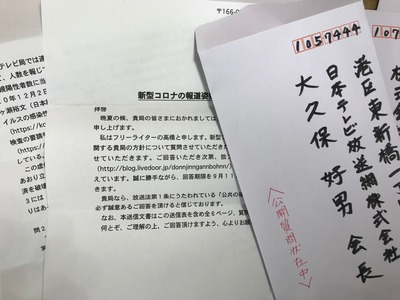 テレビ局では連
て、人数を報じ
規陽性者数に当
０年１２月２
ヶ瀬裕文（日本
イルスの感染性
検査の要請
この虚
あおり立
済を破壊
３には
りはあ
問２
〒166-0
新型コロナの報道姿
拝啓
晩夏の候、貴局の皆さまにおかれましては
申し上げます。
私はフリーライターの高橋と申します。新型
関する貴局の方針について質問させていただき
ご回答いただき次第、拙
(http://blog.livedoor.jp/donnjinngannbohnn/
えています。誠に勝手ながら、回答期限を９月１１
貴局なら、放送法第１条にうたわれている「公共の
必ず誠意あるご回答を頂けると信じております。
なお、本送信文書はこの送信表を含め全６ページ、質
何とぞ、ご理解の上、ご回答頂けますよう、心よりお願
1057444
港区東新橋一丁
日本テレビ放送網株式会社
大久保 好男 会長
〈公開質問状在中〉
107